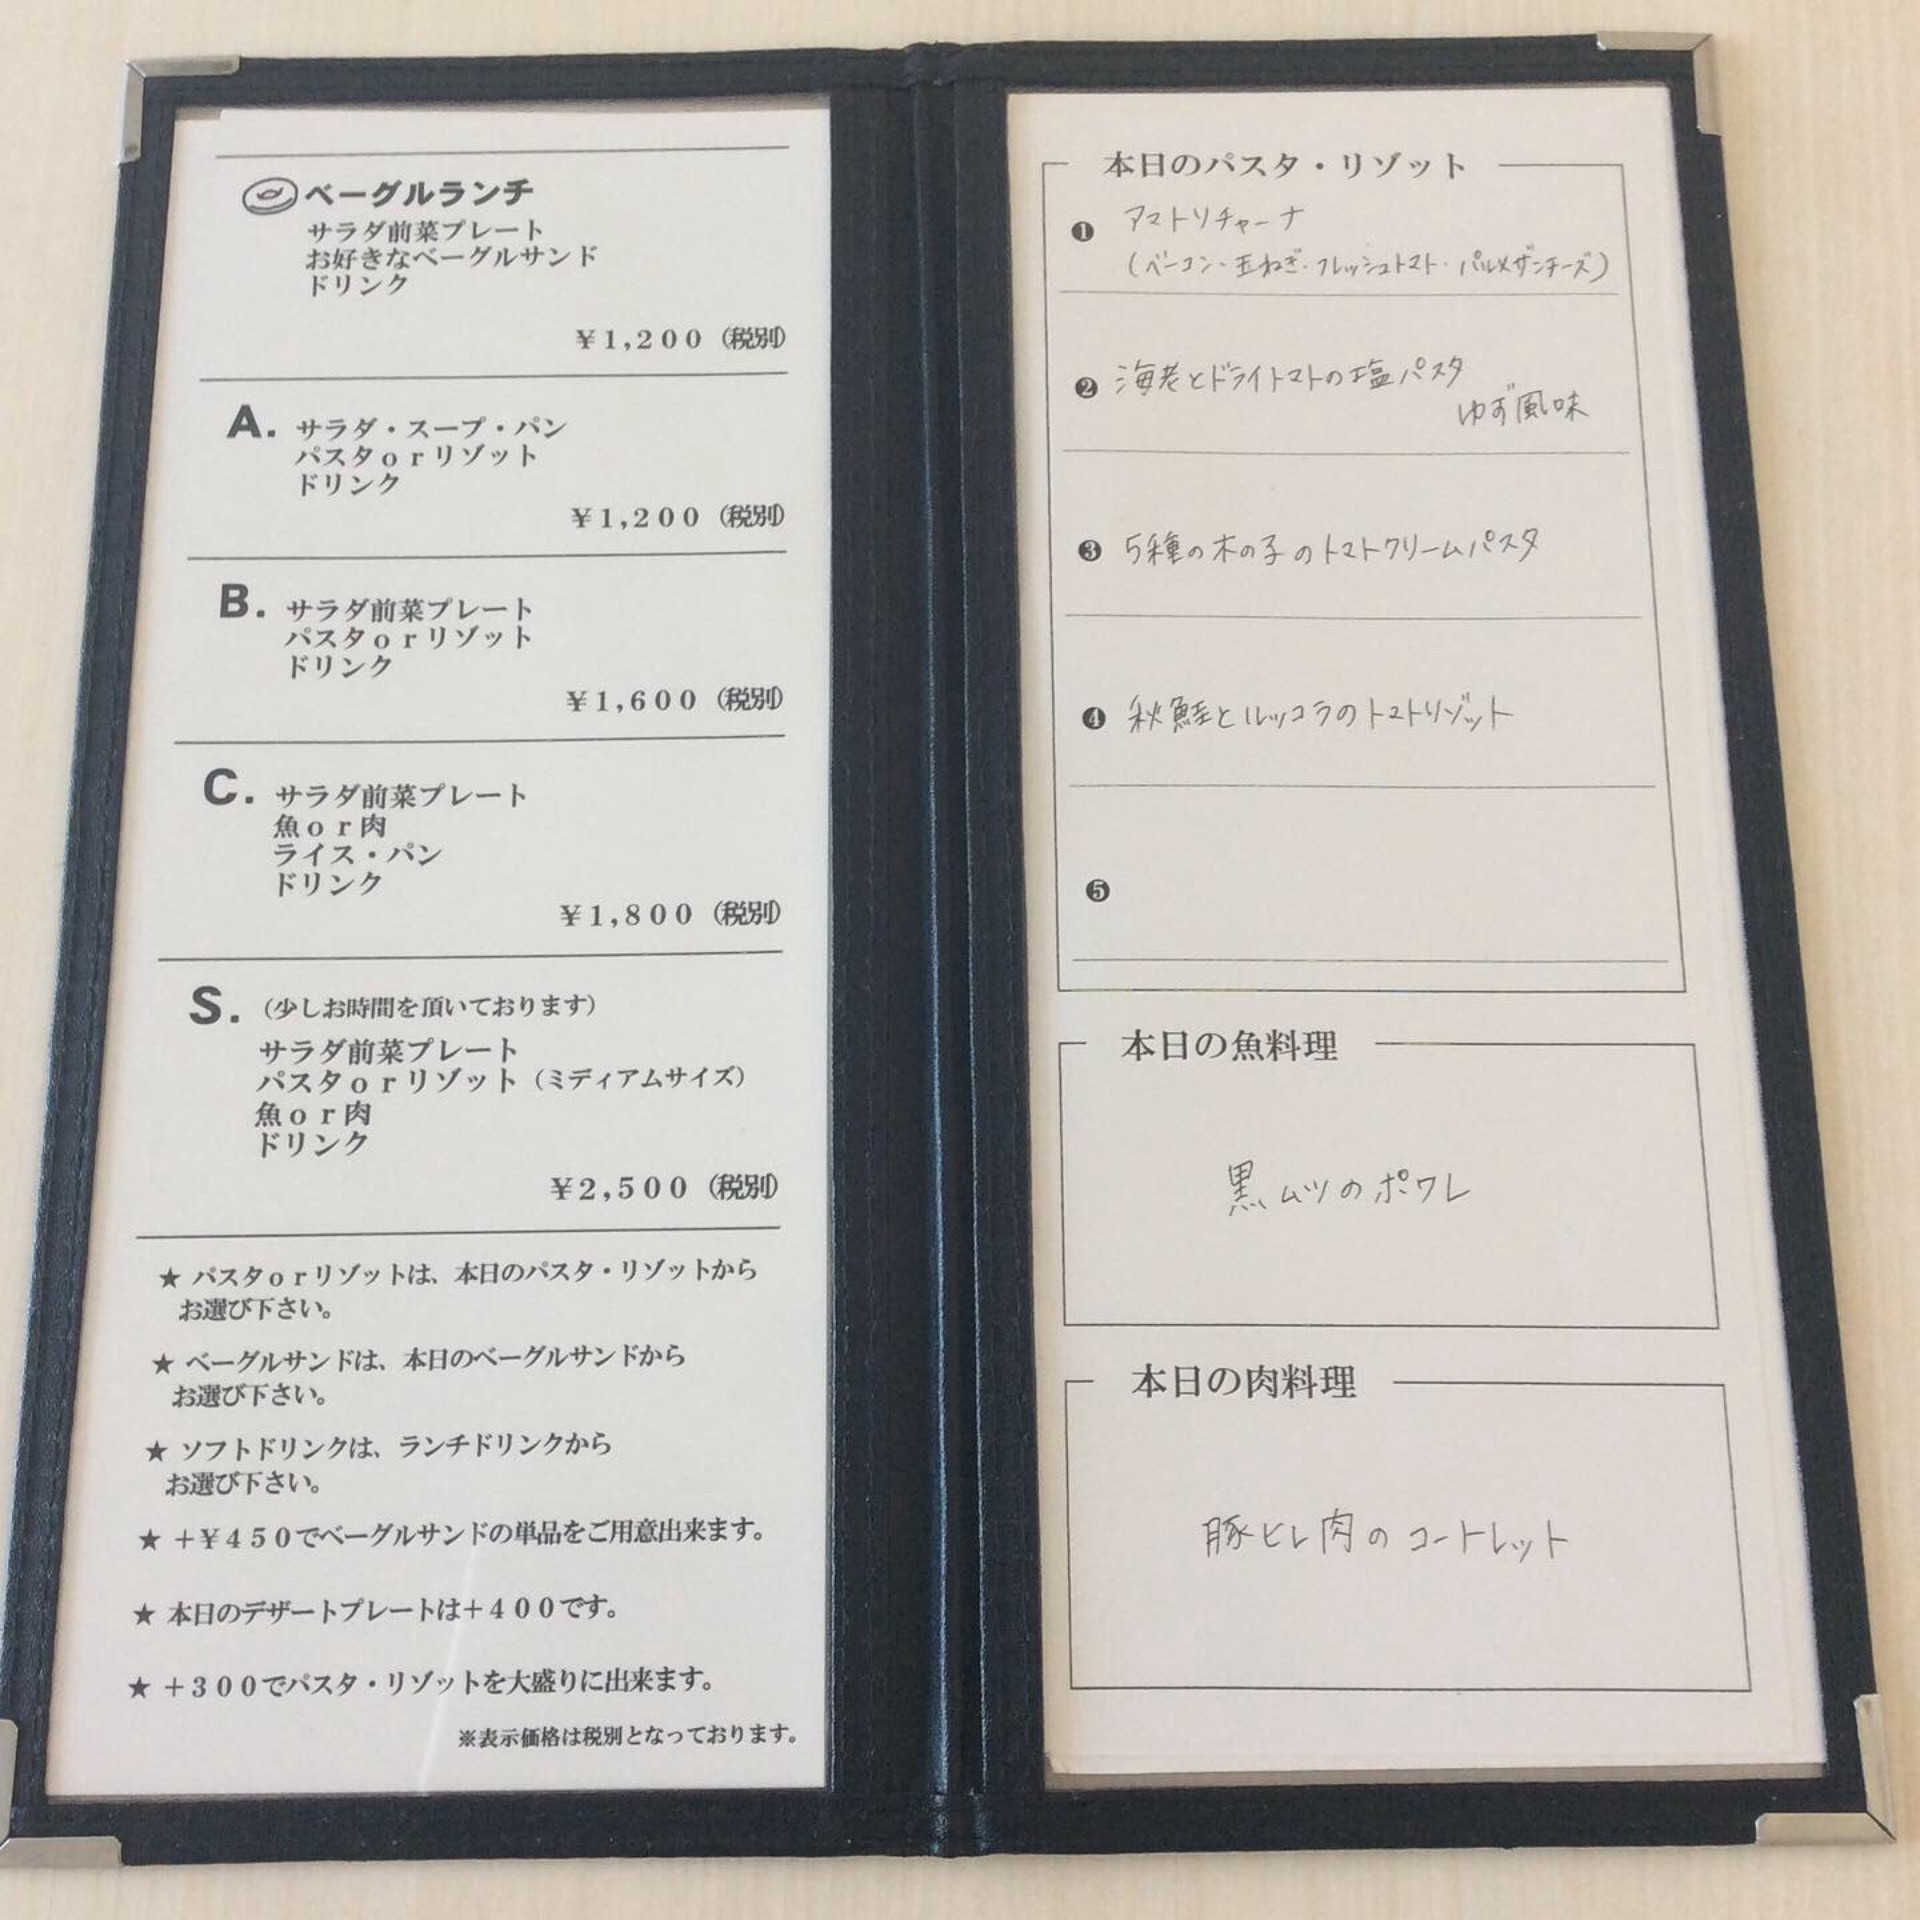 ベーグルランチ
サラダ前菜プレート
お好きなベーグルサンド
ドリンク
￥1,200（税別）
A. サラダ・スープ・パン
パスタorリゾット
ドリンク
￥1,200（税別）
B. サラダ前菜プレート
パスタorリゾット
ドリンク
￥1,600（税別）
C. サラダ前菜プレート
魚or肉
ライス・パン
ドリンク
￥1,800（税別）
S. （少しお時間を頂いております）
サラダ前菜プレート
パスタorリゾット（ミディアムサイズ）
魚or肉
ドリンク
￥2,500（税別）
★ パスタorリゾットは、本日のパスタ・リゾットから
お選び下さい。
★ ベーグルサンドは、本日のベーグルサンドから
お選び下さい。
★ ソフトドリンクは、ランチドリンクから
お選び下さい。
★ ＋￥450でベーグルサンドの単品をご用意出来ます。
★ 本日のデザートプレートは＋400です。
★ ＋300でパスタ・リゾットを大盛りに出来ます。
※表示価格は税別となっております。
本日のパスタ・リゾット
❶ アマトリチャーナ
（ベーコン・玉ねぎ・フレッシュトマト・パルメザンチーズ）
❷ 海老とドライトマトの塩パスタ
ゆず風味
❸ 5種の木の子のトマトクリームパスタ
❹ 秋鮭とルッコラのトマトリゾット
❺
本日の魚料理
黒ムツのポワレ
本日の肉料理
豚ヒレ肉のコートレット